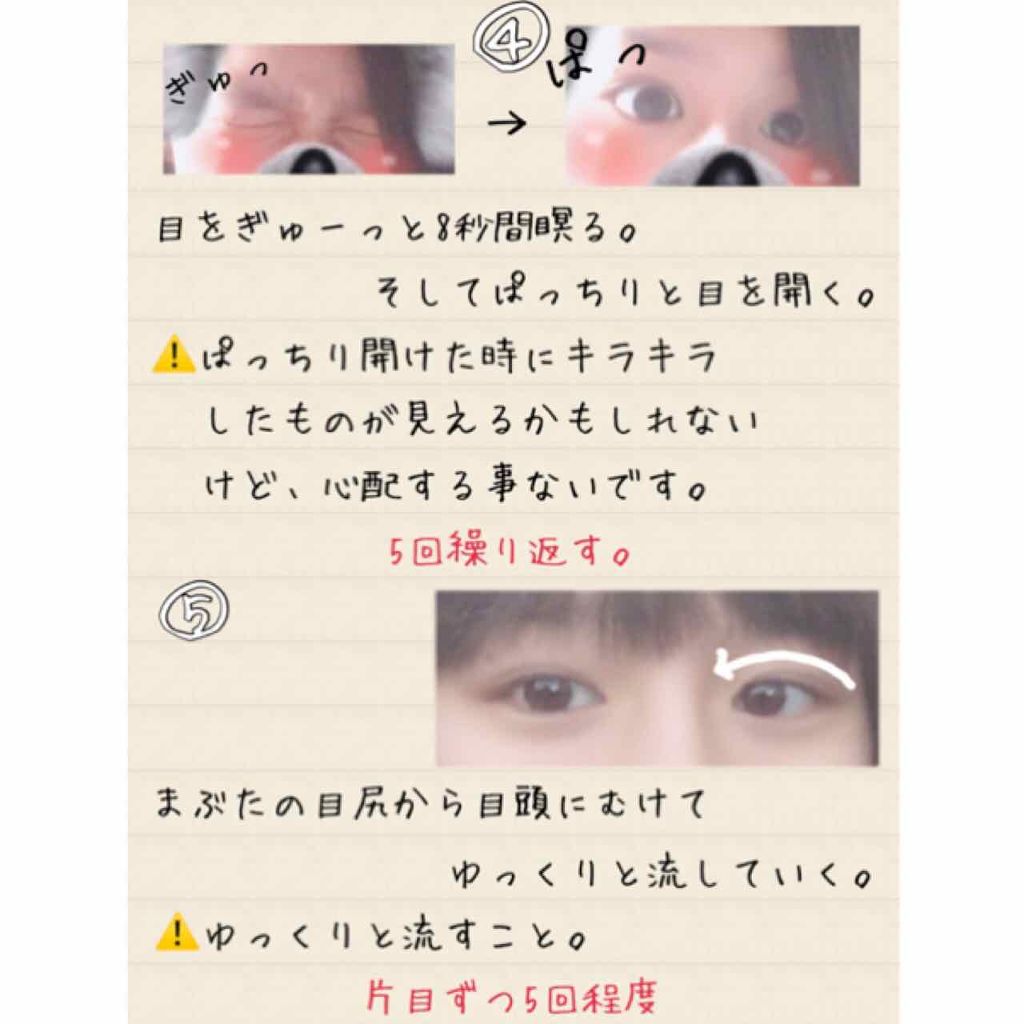 ④
ぎゅっ
→
ぱっ
目をぎゅーっと8秒間瞑る。
そしてぱっちりと目を開く。
⚠️ぱっちり開けた時にキラキラ
したものが見えるかもしれない
けど、心配する事ないです。
5回繰り返す。
⑤
まぶたの目尻から目頭にむけて
ゆっくりと流していく。
⚠️ゆっくりと流すこと。
片目ずつ5回程度